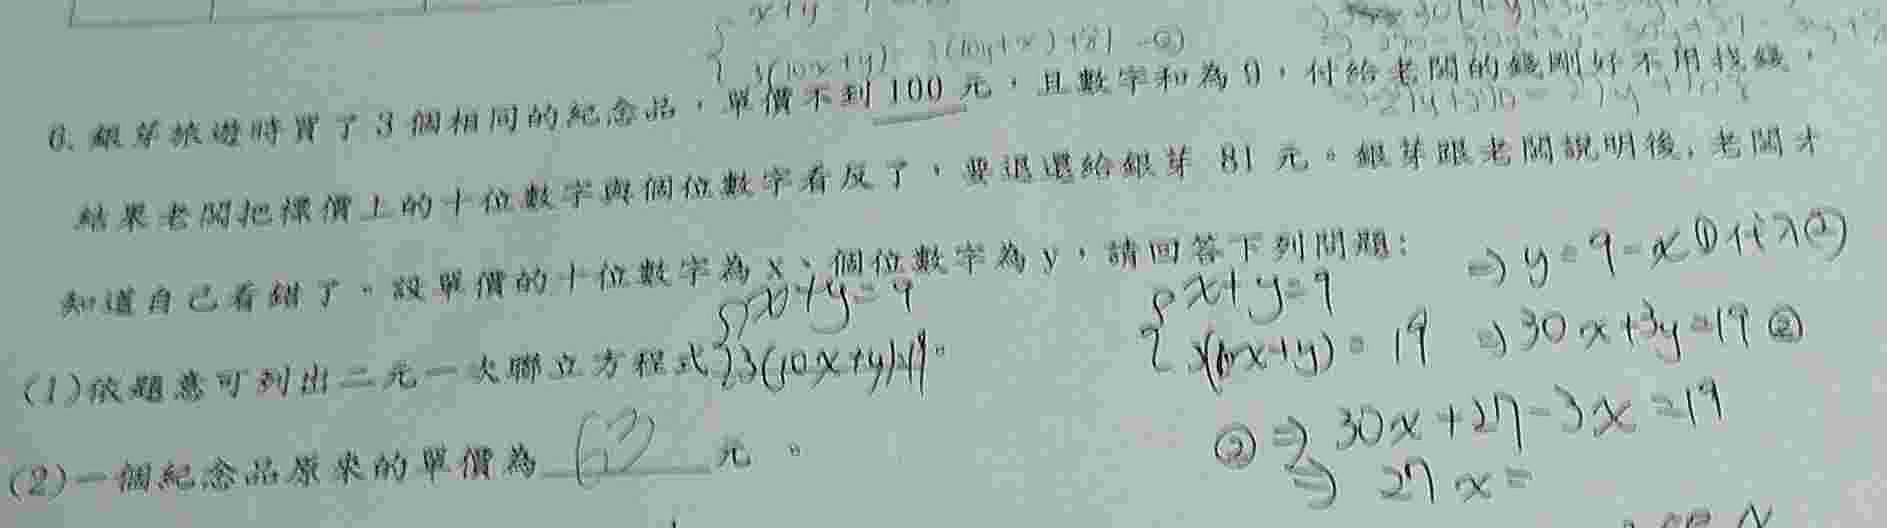 x+y
3(10x+y)=3(10y+x)+81 -②
6. 銀芽旅遊時買了3個相同的紀念品，單價不到100元，且數字和為9，付給老闆的錢剛好不用找錢，
結果老闆把標價上的十位數字與個位數字看反了，要退還給銀芽 81 元。銀芽跟老闆說明後，老闆才
知道自己看錯了。設單價的十位數字為x、個位數字為y，請回答下列問題：
⇒ y=9-x ①代入②
x+y=9
x+y=9
(1)依題意可列出二元一次聯立方程式 3(10x+y)=19。
3(10x+y)=19 ⇒ 30x+3y=19 ②
② ⇒ 30x+27-3x=19
(2)一個紀念品原來的單價為 63 元。
⇒ 27x=